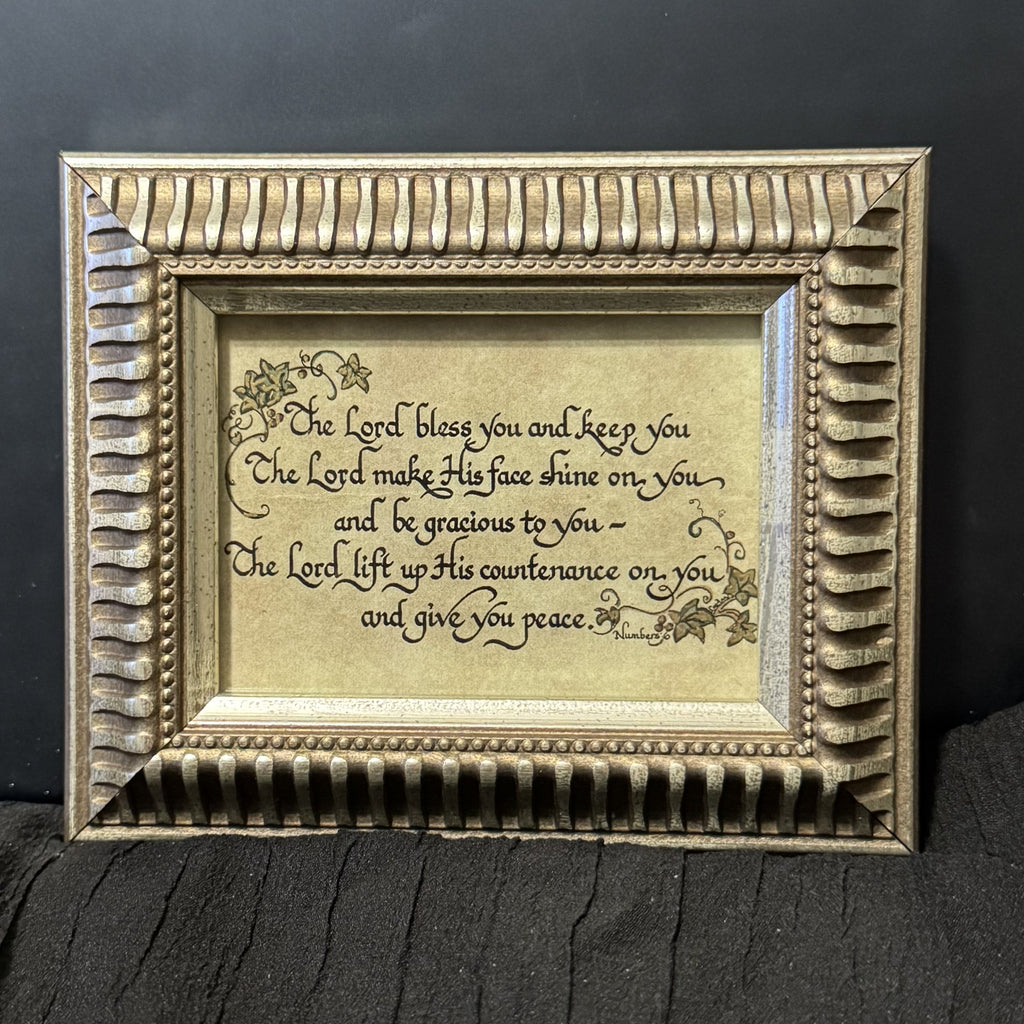 The Lord bless you and keep you
The Lord make His face shine on you
and be gracious to you –
The Lord lift up His countenance on you
and give you peace.
Numbers 6